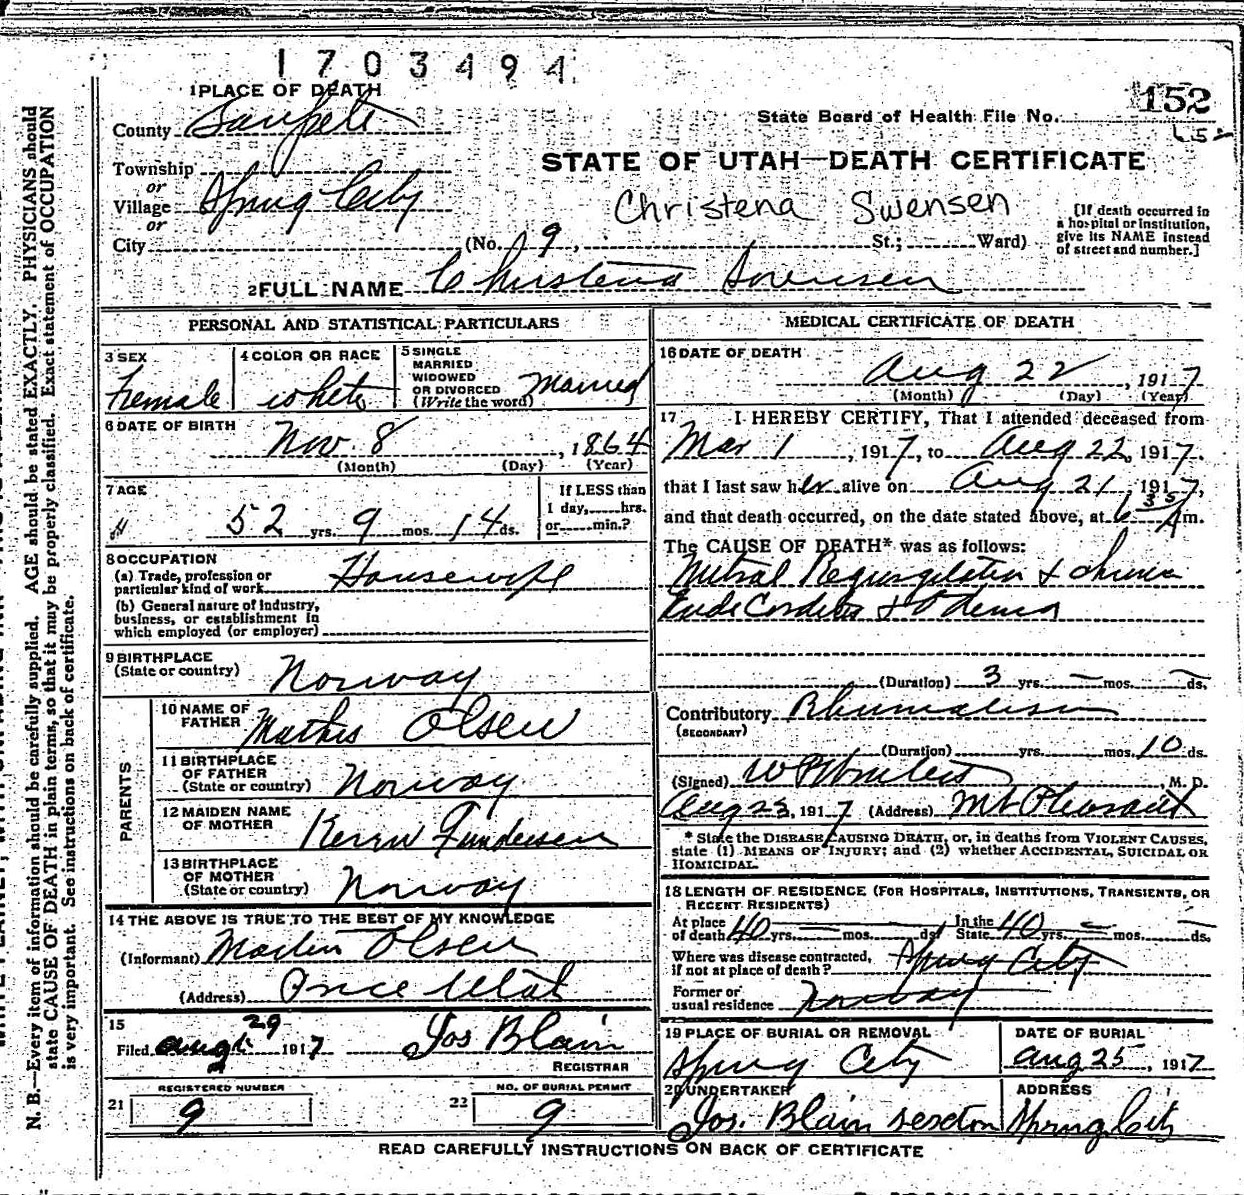 1703494
1 PLACE OF DEATH
152
County Sanpete
State Board of Health File No.
Township
or
STATE OF UTAH—DEATH CERTIFICATE
Village Spring City
or
Christena Swensen
[If death occurred in
a hospital or institution,
give its NAME instead
of street and number.]
City (No. 9, St.; Ward)
2 FULL NAME Christena Sorensen
PERSONAL AND STATISTICAL PARTICULARS
3 SEX
Female
4 COLOR OR RACE
white
5 SINGLE
MARRIED
WIDOWED
OR DIVORCED
(Write the word) Married
6 DATE OF BIRTH
Nov. 8, 1864
(Month) (Day) (Year)
7 AGE
52 yrs. 9 mos. 14 ds.
If LESS than
1 day, hrs.
or min.?
8 OCCUPATION
(a) Trade, profession or
particular kind of work Housewife
(b) General nature of industry,
business, or establishment in
which employed (or employer)
9 BIRTHPLACE
(State or country) Norway
PARENTS
10 NAME OF
FATHER Mathis Olsen
11 BIRTHPLACE
OF FATHER
(State or country) Norway
12 MAIDEN NAME
OF MOTHER
13 BIRTHPLACE
OF MOTHER
(State or country) Norway
14 THE ABOVE IS TRUE TO THE BEST OF MY KNOWLEDGE
(Informant) Martin Olsen
(Address) Price Utah
15
Filed Aug 29 1917 Jos Blain
REGISTRAR
REGISTERED NUMBER
21 9
NO. OF BURIAL PERMIT
22 9
MEDICAL CERTIFICATE OF DEATH
16 DATE OF DEATH
Aug 22, 1917
(Month) (Day) (Year)
17 I HEREBY CERTIFY, That I attended deceased from
Mar 1, 1917, to Aug 22, 1917.
that I last saw her alive on Aug 21, 1917,
and that death occurred, on the date stated above, at 6 35 A m.
The CAUSE OF DEATH* was as follows:
Mitral Regurgitation &
Endocarditis & Odema
(Duration) 3 yrs. — mos. — ds.
Contributory Rhumatism
(SECONDARY)
(Duration) yrs. mos. 10 ds.
(Signed) M. D.
Aug 23, 1917 (Address) Mt Pleasant
* State the DISEASE CAUSING DEATH, or, in deaths from VIOLENT CAUSES,
state (1) MEANS OF INJURY; and (2) whether ACCIDENTAL, SUICIDAL OR
HOMICIDAL.
18 LENGTH OF RESIDENCE (FOR HOSPITALS, INSTITUTIONS, TRANSIENTS, OR
RECENT RESIDENTS)
At place of death 40 yrs. — mos. ds. In the State 40 yrs. — mos. — ds.
Where was disease contracted,
if not at place of death? Spring City
Former or
usual residence Norway
19 PLACE OF BURIAL OR REMOVAL
Spring City
DATE OF BURIAL
Aug 25, 1917
20 UNDERTAKER
Jos. Blain sexton
ADDRESS
Spring City
READ CAREFULLY INSTRUCTIONS ON BACK OF CERTIFICATE
N. B.—Every item of information should be carefully supplied. AGE should be stated EXACTLY. PHYSICIANS should
state CAUSE OF DEATH in plain terms, so that it may be properly classified. Exact statement of OCCUPATION
is very important. See instructions on back of certificate.